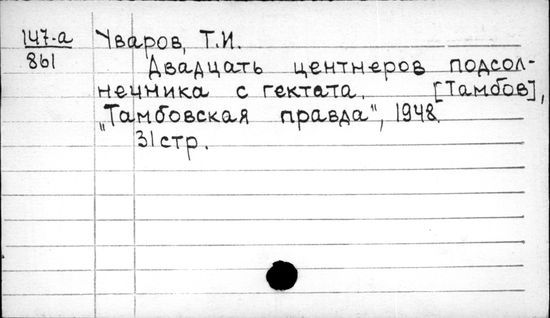 147-а Уваров, Т.И.
861 Двадцать центнеров подсол-
нечника с гектата. [Тамбов],
„Тамбовская правда", 1948.
31 стр.